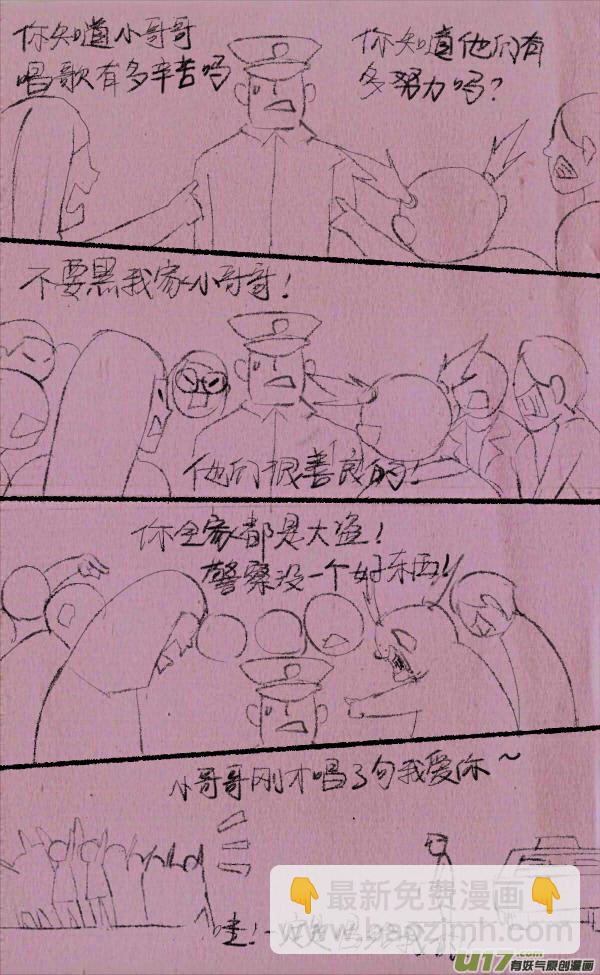 你知道小哥哥
唱歌有多辛苦吗
你知道他们有
多努力吗?
不要黑我家小哥哥!
他们很善良的!
你全家都是大盗!
警察没一个好东西!
小哥哥刚才唱了句我爱你~
哇!
最新免费漫画
www.baozimh.com
U17.com
有妖气原创漫画